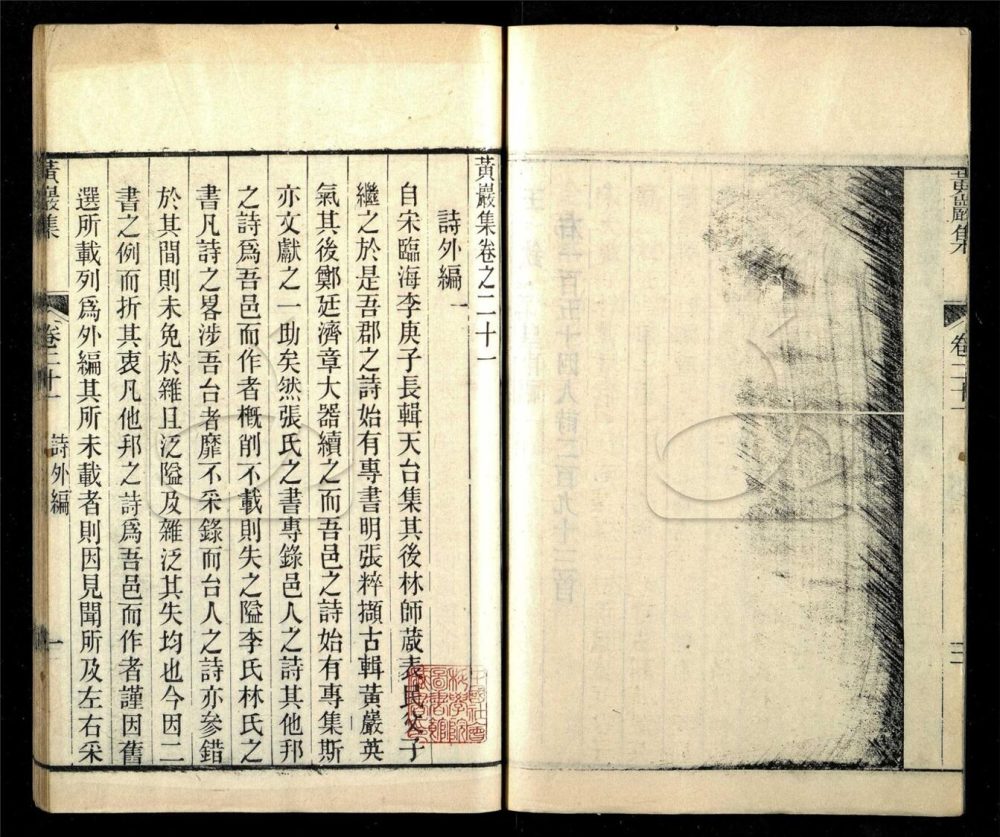 黃巖集卷之二十一
詩外編一
自宋臨海李庚子長輯天台集其後林師蒧表民父子
繼之於是吾郡之詩始有專書明張粹擷古輯黃巖英
氣其後鄭廷濟章大器續之而吾邑之詩始有專集斯
亦文獻之一助矣然張氏之書專錄邑人之詩其他邦
之詩爲吾邑而作者槪削不載則失之隘李氏林氏之
書凡詩之畧涉吾台者靡不采錄而台人之詩亦參錯
於其間則未免於雜且泛隘及雜泛其失均也今因二
書之例而折其衷凡他邦之詩爲吾邑而作者謹因舊
選所載列爲外編其所未載者則因見聞所及左右采
黃巖集 卷二十一 詩外編 一
黃巖集 卷二十一